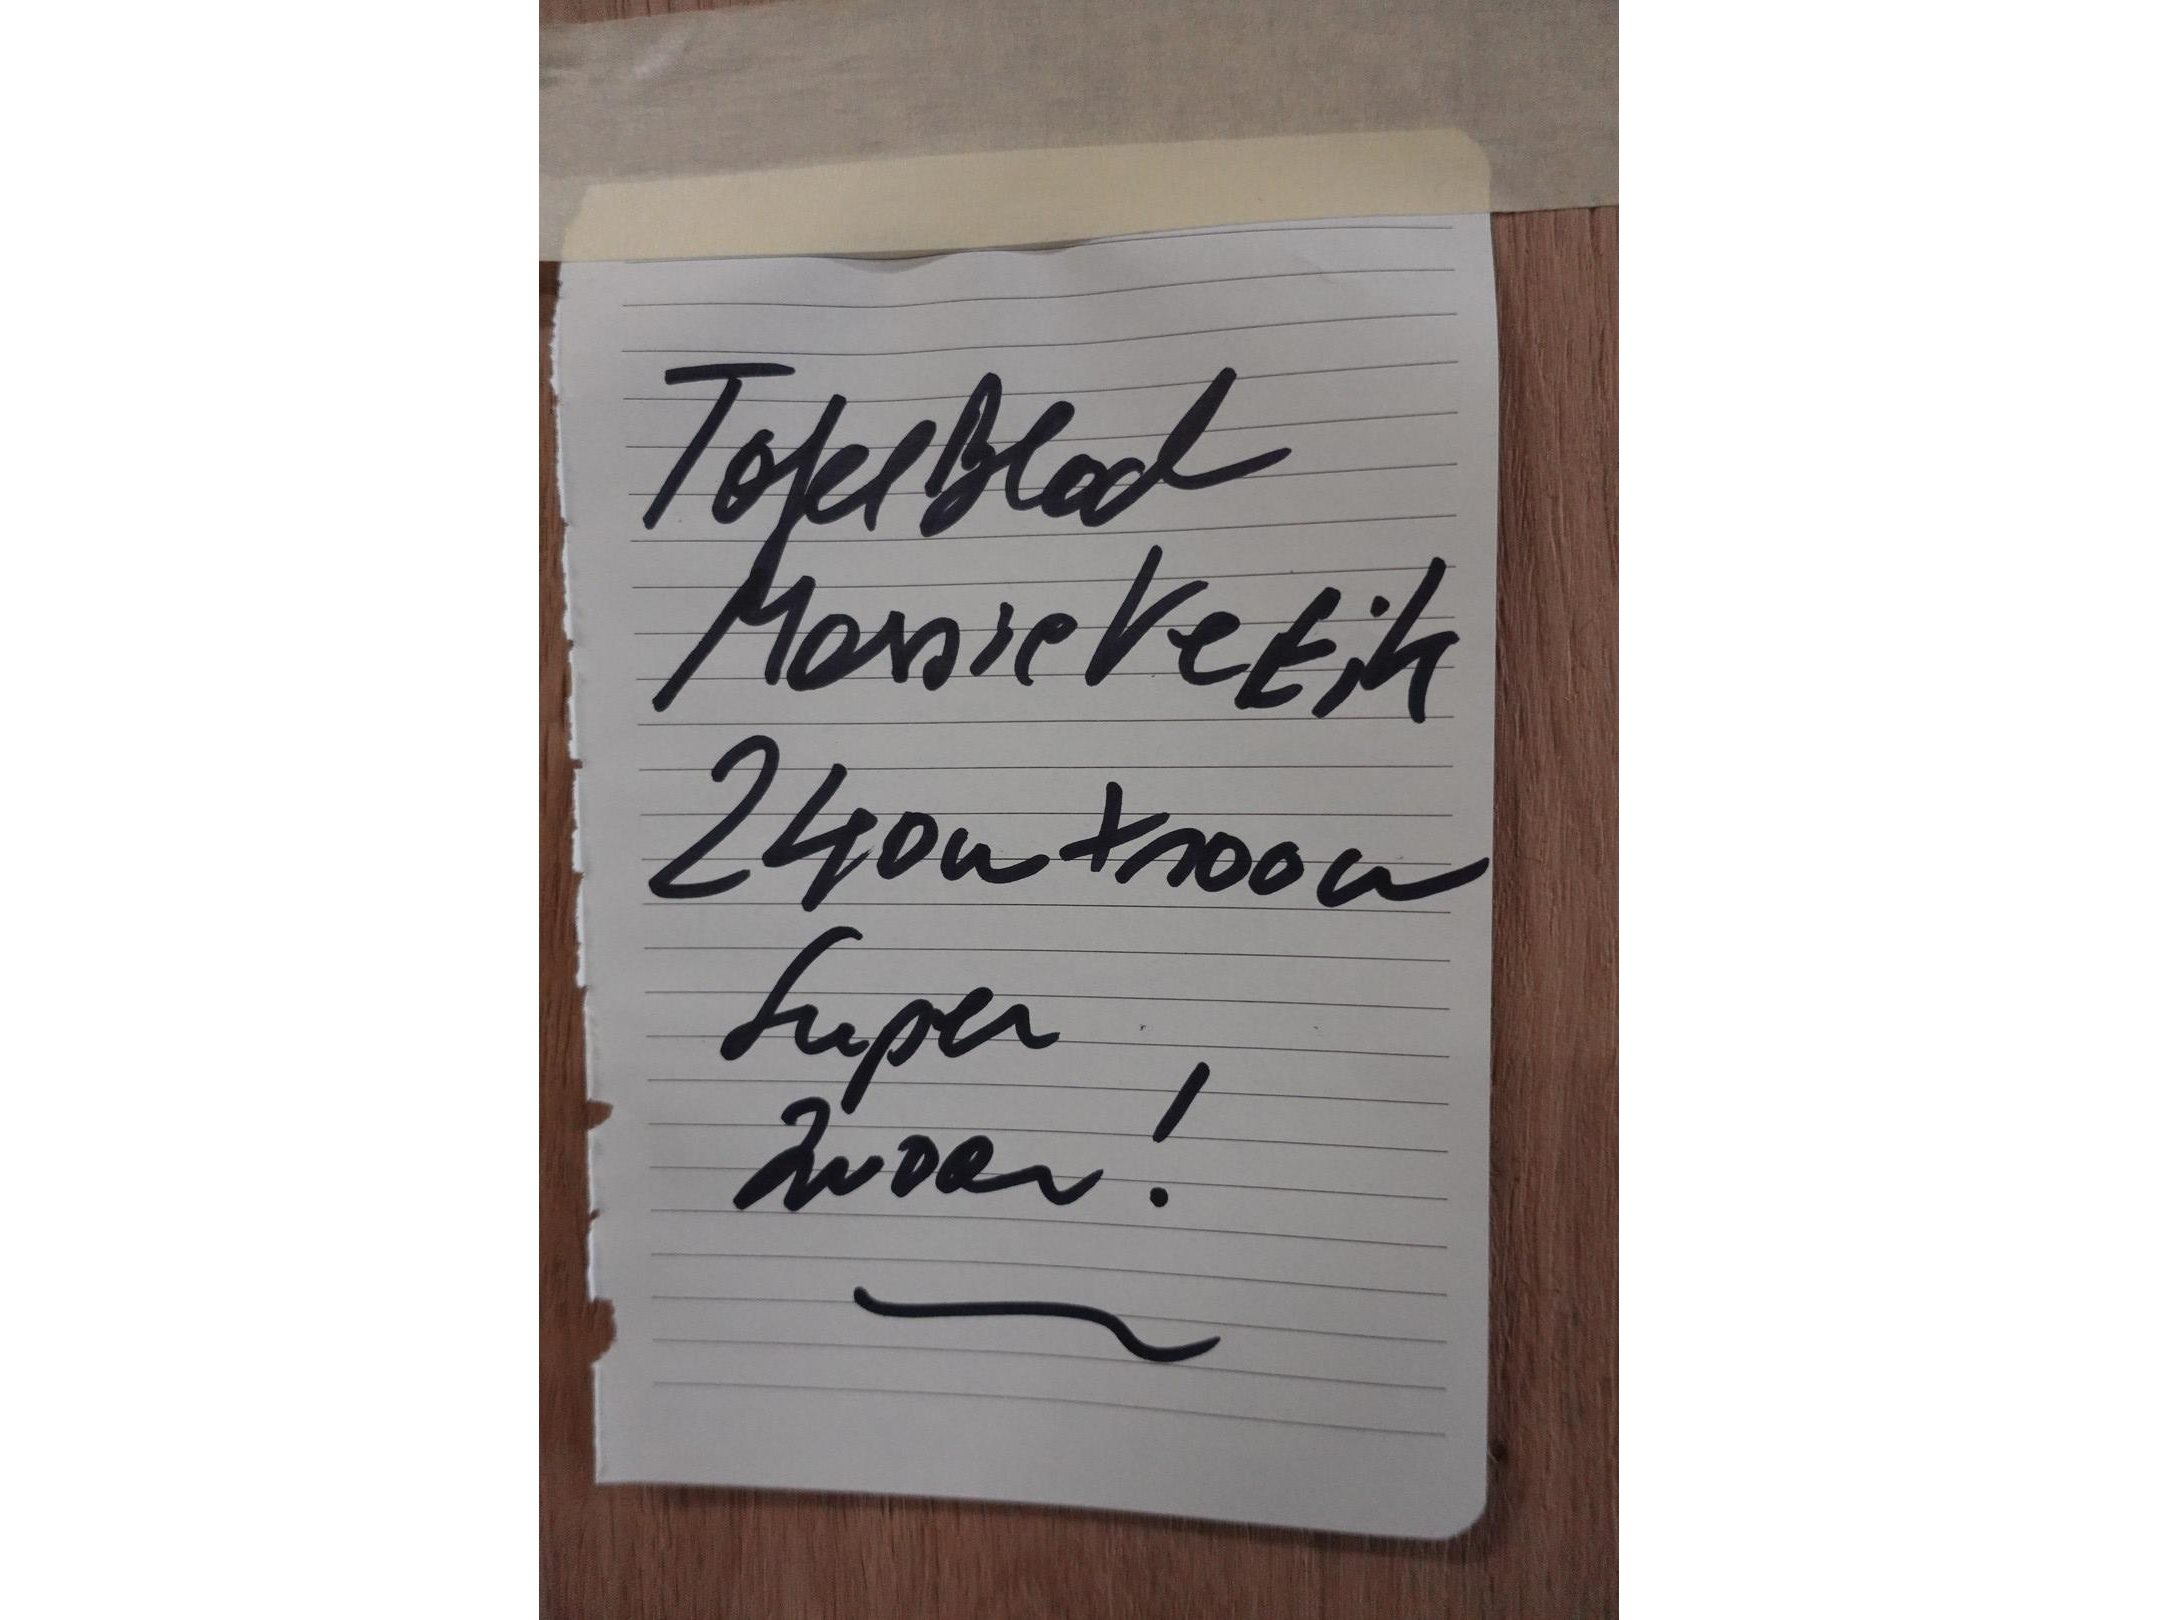 TafelBlad
Massief Eik
240cm x 100cm
Super
Zwaar!